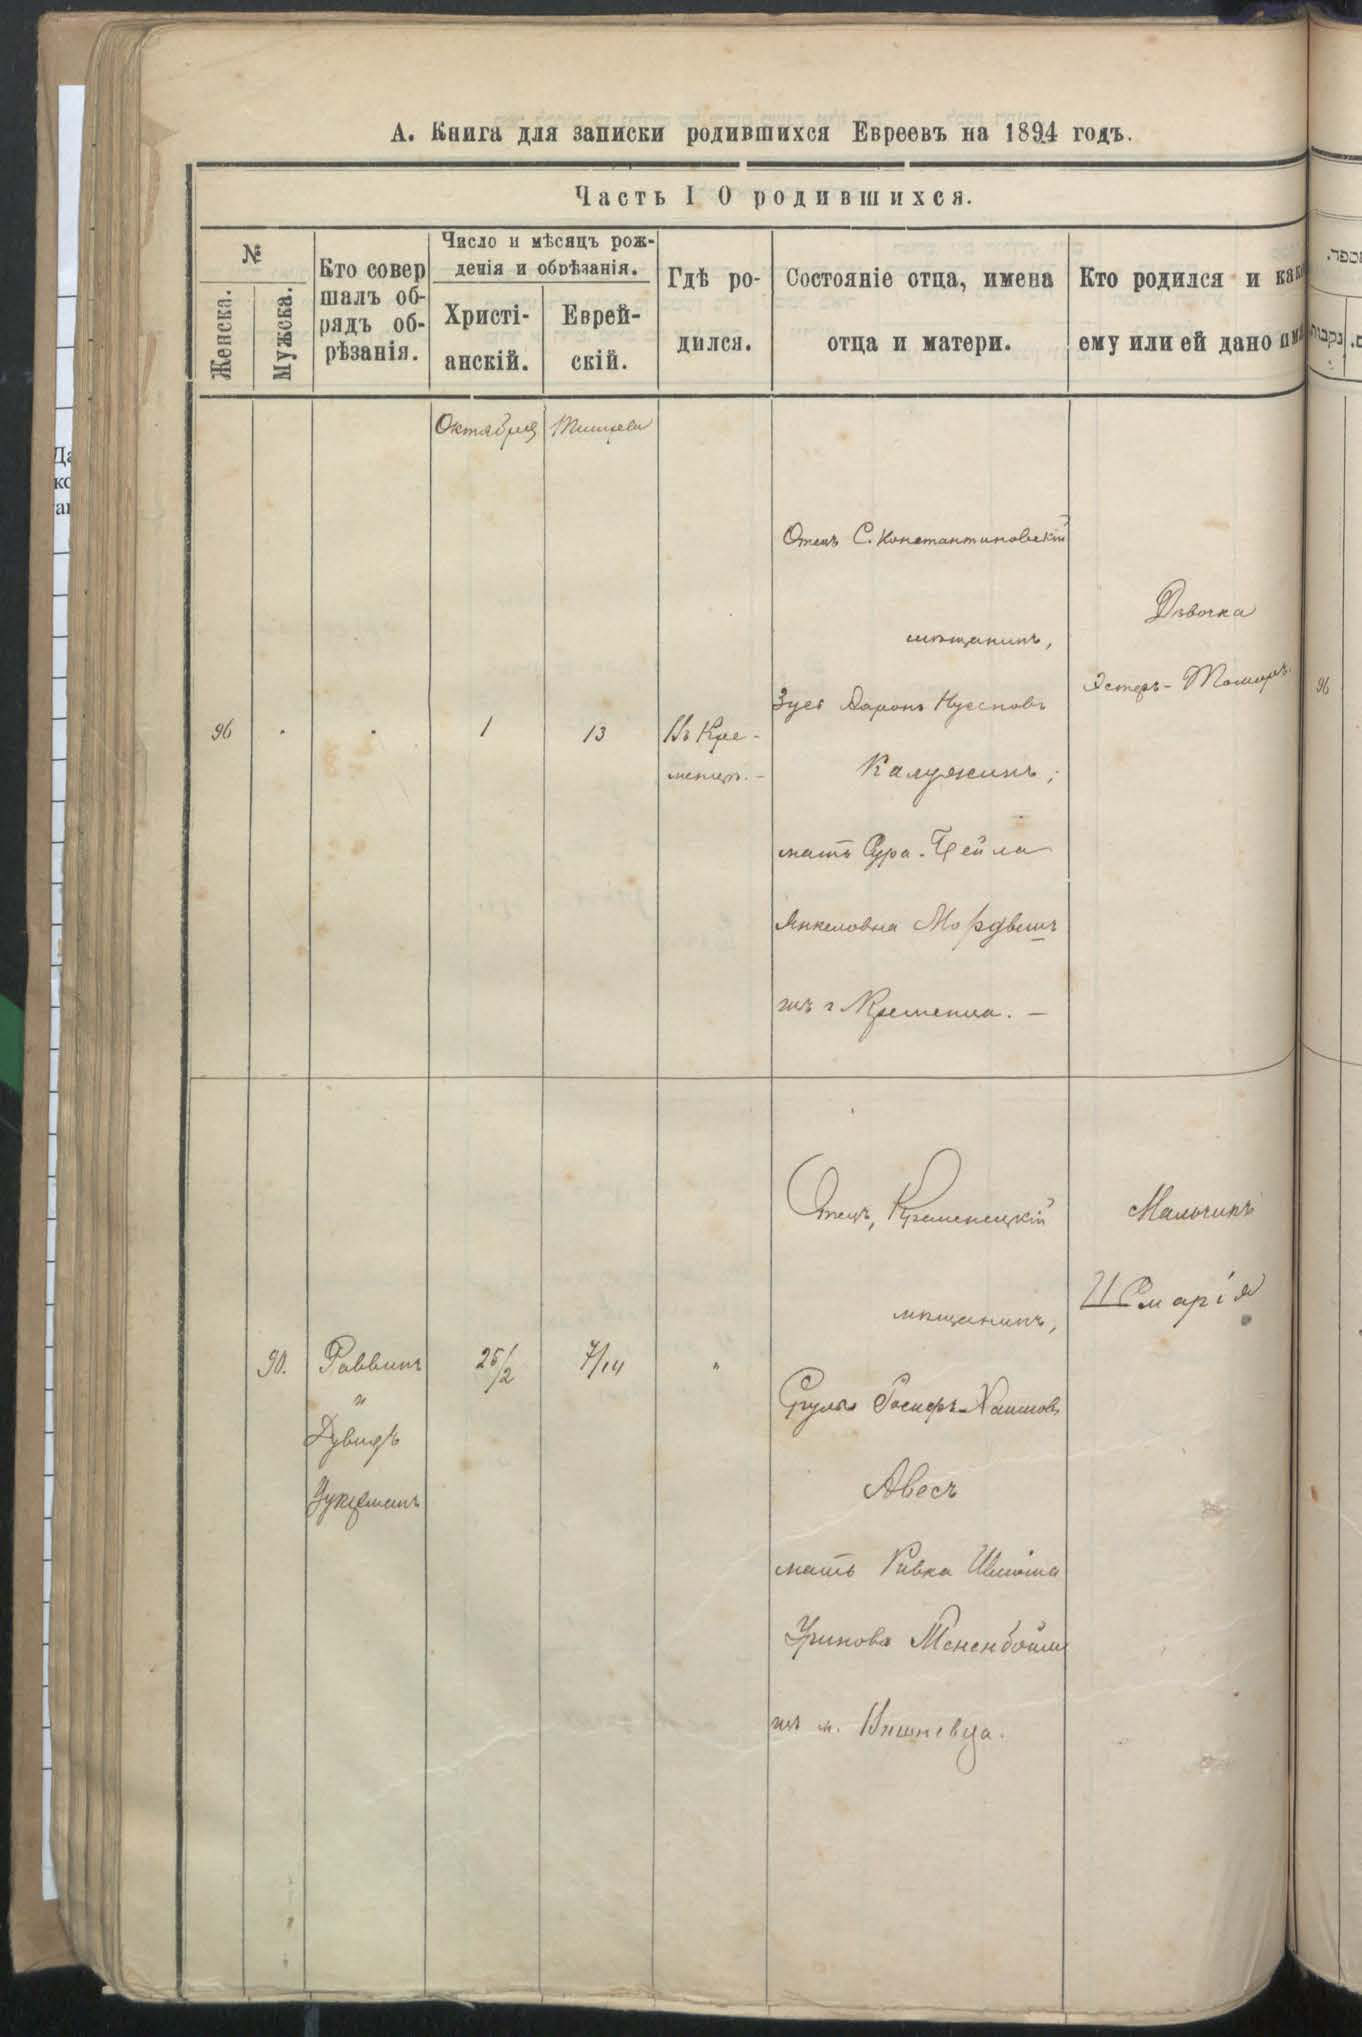 А. Книга для записки родившихся Евреевъ на 1894 годъ.
Часть I О родившихся.
№
Женска.
Мужска.
Кто совер
шалъ об-
рядъ об-
рѣзанія.
Число и мѣсяцъ рож-
денія и обрѣзанія.
Христі-
анскій.
Еврей-
скій.
Гдѣ ро-
дился.
Состояніе отца, имена
отца и матери.
Кто родился и како
ему или ей дано има
Октября
Тишрей
96
1
13
Въ Кре-
менцѣ. -
Отецъ С. Константиновскій
мѣщанинъ,
Зусь Ааронъ
Калужинъ;
мать Сура-Цейла
Янкеловна
изъ г Кременца. -
Дѣвочка
Эстеръ-
90.
Раввинъ
и
Дувидъ
Цукерманъ
25/2
7/14
"
Отецъ, Кременецкій
мѣщанинъ,
Сруль Іосифъ-Хаимовъ
Авесъ
мать Ривка
изъ м. Вишневца.
Мальчикъ
Шмарія
96